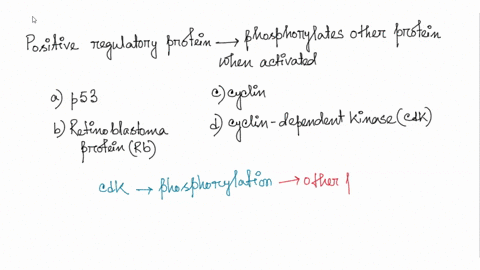 Positive regulatory protein → phosphorylates other protein
when activated
a) p53
c) cyclin
b) Retinoblastoma
protein (Rb)
d) cyclin-dependent kinase (cdk)
cdk → phosphorylation → other p